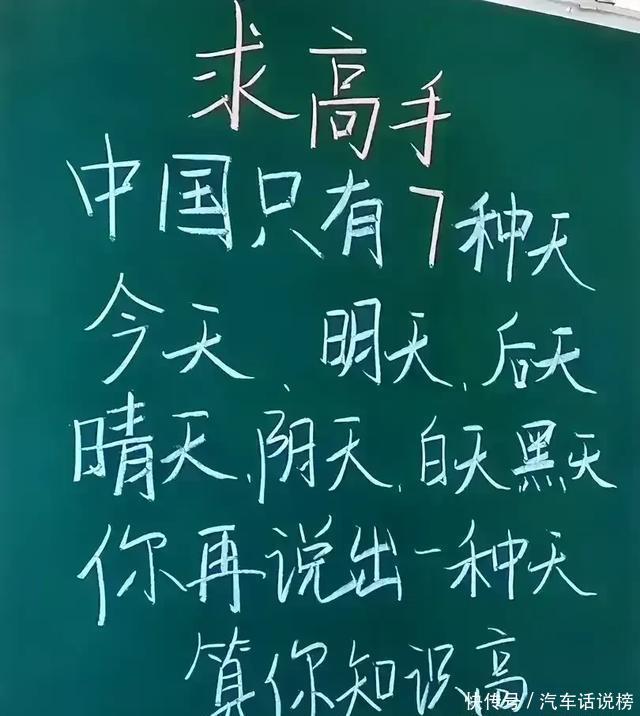 求高手
中国只有7种天
今天、明天、后天
晴天、阴天、白天黑天
你再说出一种天
算你知识高
快传号/汽车话说榜